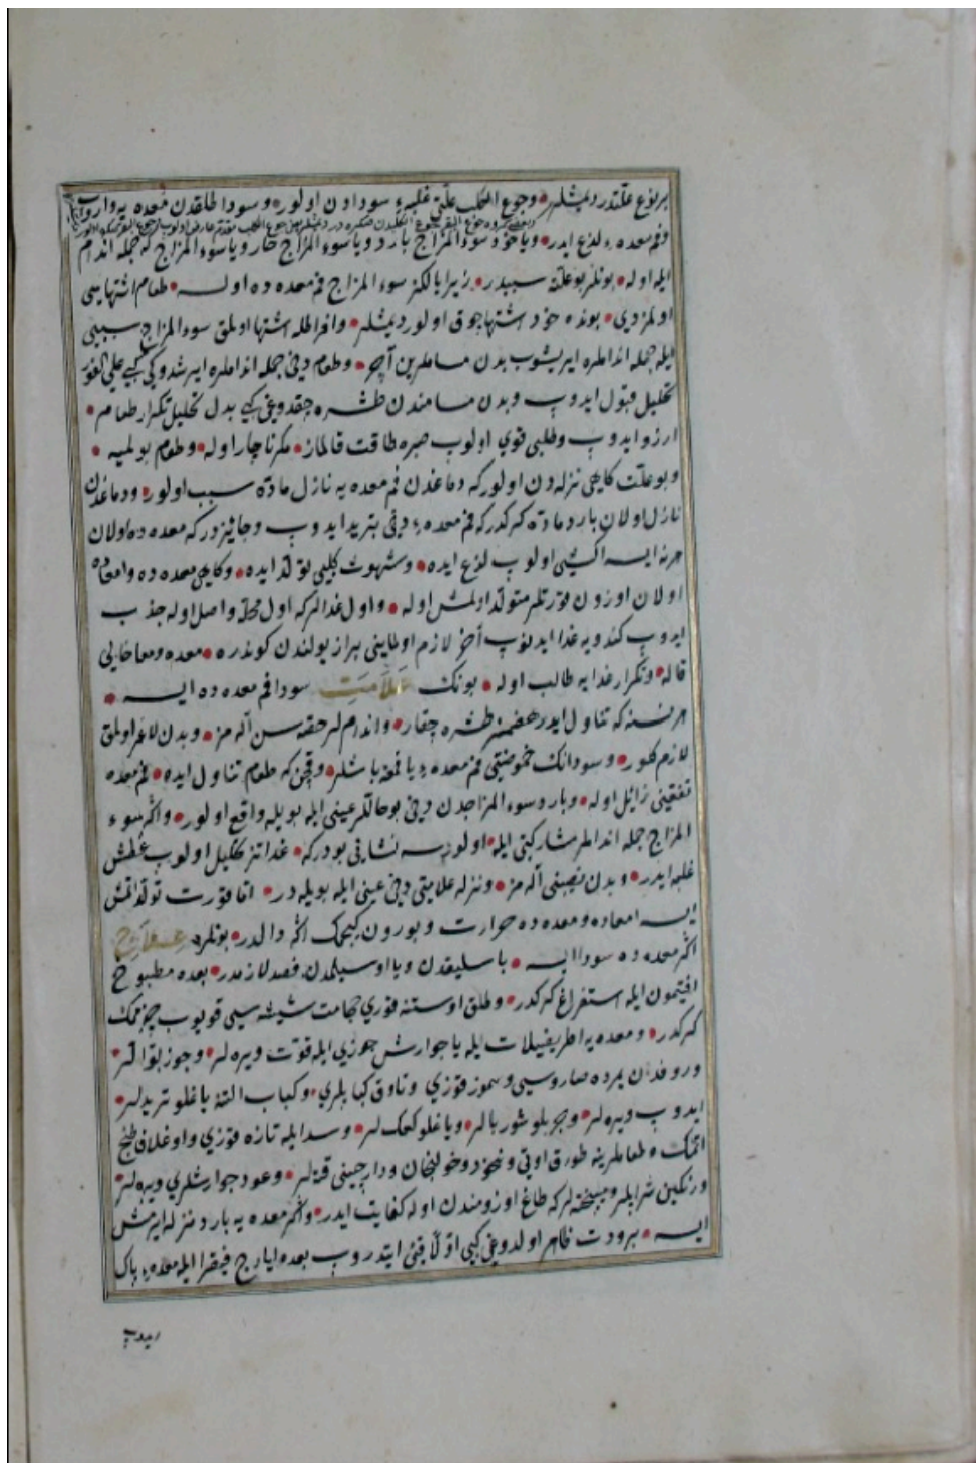 بر نوع علتدر دیمشلر • وجوع الکلب علتی غلبهٔ سودادن اولور • وسودا طلاقدن معده یه واروب
وفم معده یی لذع ایدر • ویاخود سوء المزاج بارد ویا سوء المزاج حار ویا سوء المزاج که جمله اندام
ایله اوله • بونلر بو علته سببدر • زیرا یالکز سوء المزاج فم معده ده اولسه • طعام اشتهاسی
اولمزدی • بونده خود اشتها چوق اولور دیمشلر • وافراطله اشتها اولمق سوء المزاج سببی
ایله جمله اندامлره ایریشوب بدن مساملرین آچر • وطعام دخی جمله اندامлره ایرشدوکی کبی علی الفور
تحلیل قبول ایدوب وبدن مسامندن طشره چقدوغی کبی بدل تحلیل تکرار طعام •
ارزو ایدوب وطلبی قوی اولوب صبره طاقت قالماز • مکر ناچار اوله • وطعام بولمیه •
وبو علت کاهی نزله دن اولور که دماغدن فم معده یه نازل ماده سبب اولور • ودماغدن
نازل اولان بارد ماده کرکدر که فم معده یی دخی تبرید ایدوب وجایزدر که معده ده اولان
هر نه ایسه اکشی اولوب لذع ایده • وشهوت کلبی تولد ایده • وکاهی معده ده وامعاده
اولان اوزون قورتلر متولد اولمش اوله • واول غدالر که اول محله واصل اوله جذب
ایدوب کندویه غدا ایدنوب آخر لازم اولماینی براز یولندن کوندره • معده ومعا خالی
قاله • وتکرار غدایه طالب اوله • بونک علامت سودا فم معده ده ایسه •
هر نسنه که تناول ایدر هضمسز طشره چقار • واندامлر حقه سن آله مز • وبدن لاغر اولمق
لازم کلور • وسودانک حموضتی فم معده یی دباغته باشلر • وقچن که طعام تناول ایده • فم معده
تغفینی زائل اوله • وبارد سوء المزاجدن دخی بو حاللر عینی ایله بویله واقع اولور • واکر سوء
المزاج جمله اندامлر مشارکتی ایله اولورسه نشانی بودرکه • غداتز تحلیل اولوب عطش
غلبه ایدر • وبدن نصیبنی آله مز • ونزله علامتی دخی عینی ایله بویله در • اما قورت تولد اتمش
ایسه امعاده ومعده ده حرارت وبورون کیجمک اکثر والدر • بونلره علاج
اکر معده ده سودا ایسه • باسلیقدن ویا اوسیلمدن فصد لازمدر • بعده مطبوخ
افتیمون ایله استفراغ کرکدر • وطلق اوستنه قوری حجامت شیشه سی قویوب چکمک
کرکدر • ومعده یه اطریفیلات ایله یا جوارش جوزی ایله قوت ویره لر • وجوز بوالر
وروغندن یمرده صاروسی وسموز قوزی وتاوق کبابلری • وکباب التنه یاغلو تریدلر •
ایدوب ویره لر • وچربلو شوربالر • ویاغلو کعک لر • وسد ایله تازه قوزی واوغلاق طبخ
اتمک وطعاملرینه طورق اوتی ونخود وخولنجان ودارچینی قته لر • وعود جوارشلری ویره لر
ورنکین شرابلر ومیبختلر که طاغ اوزومندن اوله کفایت ایدر • واکر معده یه بارد نزله ایرمش
ایسه • برودت ظاهر اولدوغی کبی اولا قیئ ایتدروب بعده ایارج فیقرا ایله معده یی پاک
ایدوب